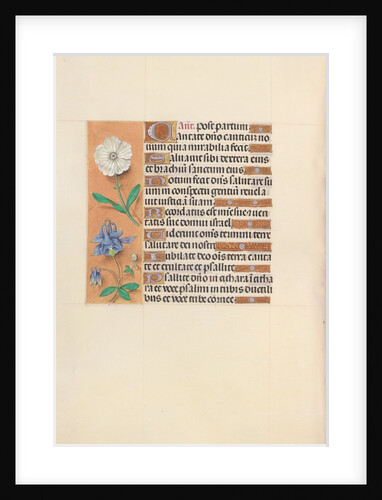 Añt. Post partum.
Cantate dño canticũ no
uum quia mirabilia fecit.
Saluauit sibi dextera eius
et brachiũ sanctum eius.
Notum fecit dñs salutare su
um in conspectu gentiũ reuela
uit iusticiã suam.
Recordatus est mie sue z ueri
tatis sue domui israel.
Uiderunt omẽs termini terre
salutare dei nostri.
Jubilate deo oĩs terra canta
te et exultate et psallite.
Psallite dño in cithara ĩ citha
ra et voce psalmi in tubis ductili
bus et voce tube cornee.